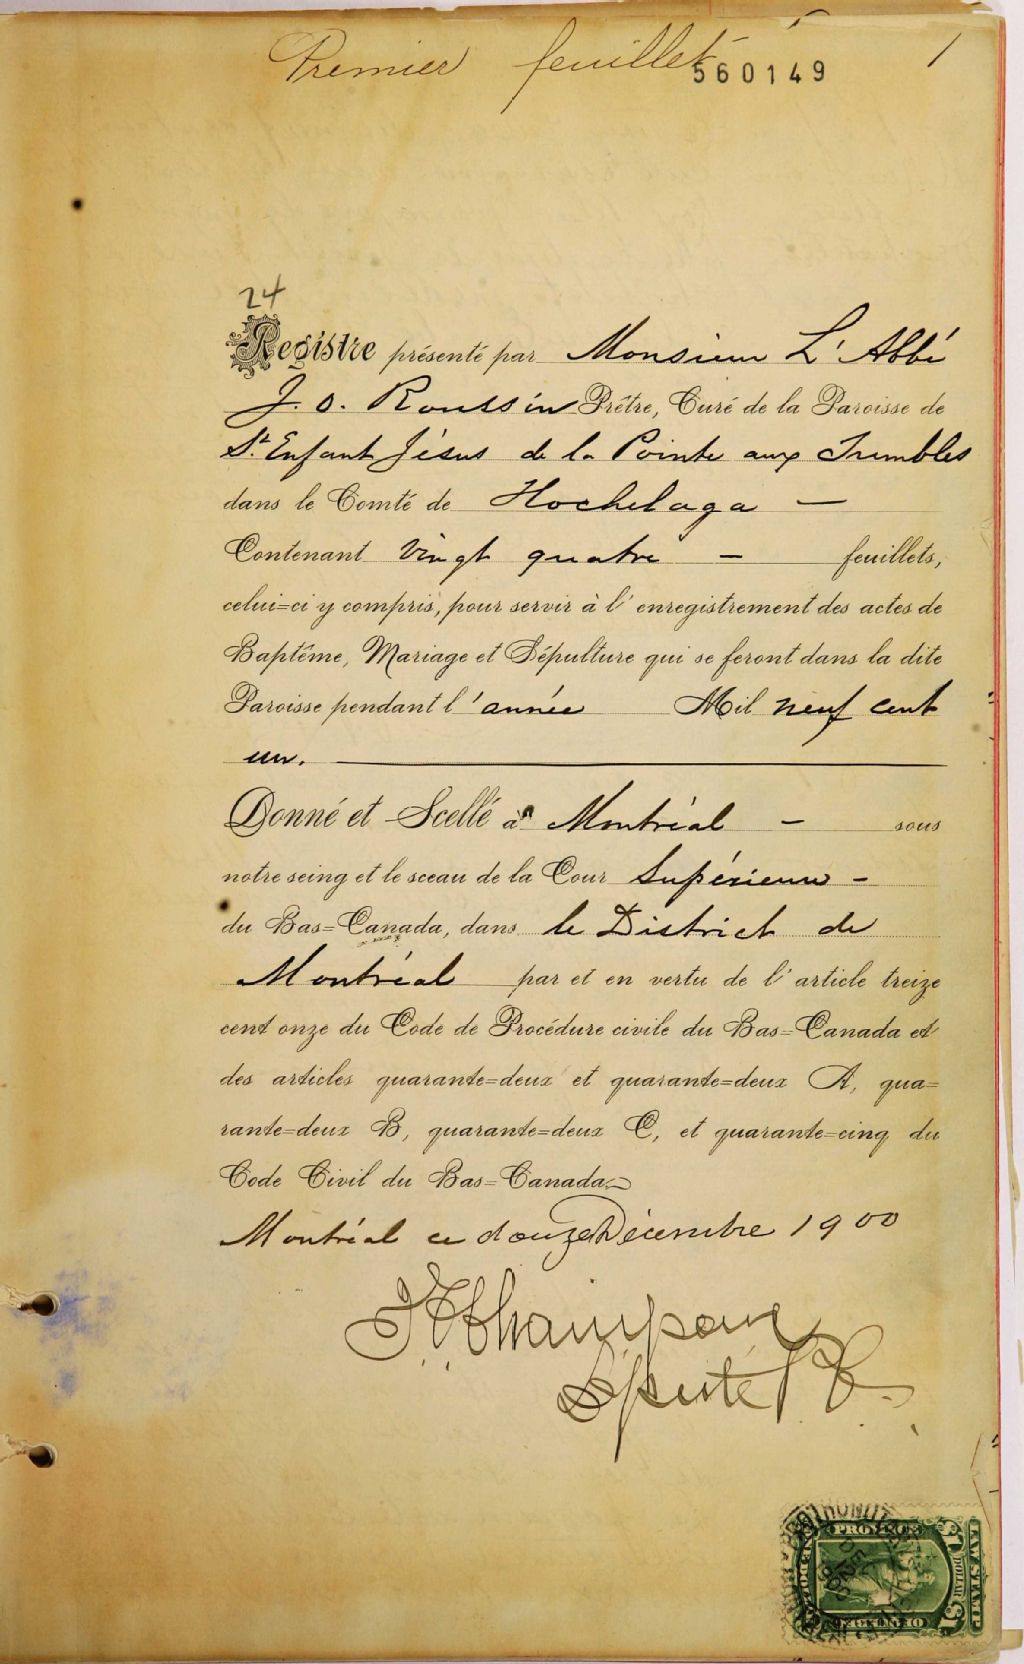 Premier feuillet 1
560149
24
Registre présenté par Monsieur L'Abbé
J. O. Roussin Prêtre, Curé de la Paroisse de
St. Enfant Jésus de la Pointe aux Trembles
dans le Comté de Hochelaga —
Contenant vingt quatre — feuillets,
celui=ci y compris, pour servir à l'enregistrement des actes de
Baptême, Mariage et Sépulture qui se feront dans la dite
Paroisse pendant l'année Mil neuf cent
un.
Donné et Scellé à Montréal — sous
notre seing et le sceau de la Cour Supérieure —
du Bas=Canada, dans le District de
Montréal par et en vertu de l'article treize
cent onze du Code de Procédure civile du Bas=Canada et
des articles quarante=deux et quarante=deux A, qua=
rante=deux B, quarante=deux C, et quarante=cinq du
Code Civil du Bas=Canada.
Montréal ce douze Décembre 1900
Député P. C.
LAW STAMP
$1 DOLLAR $1
PROVINCE